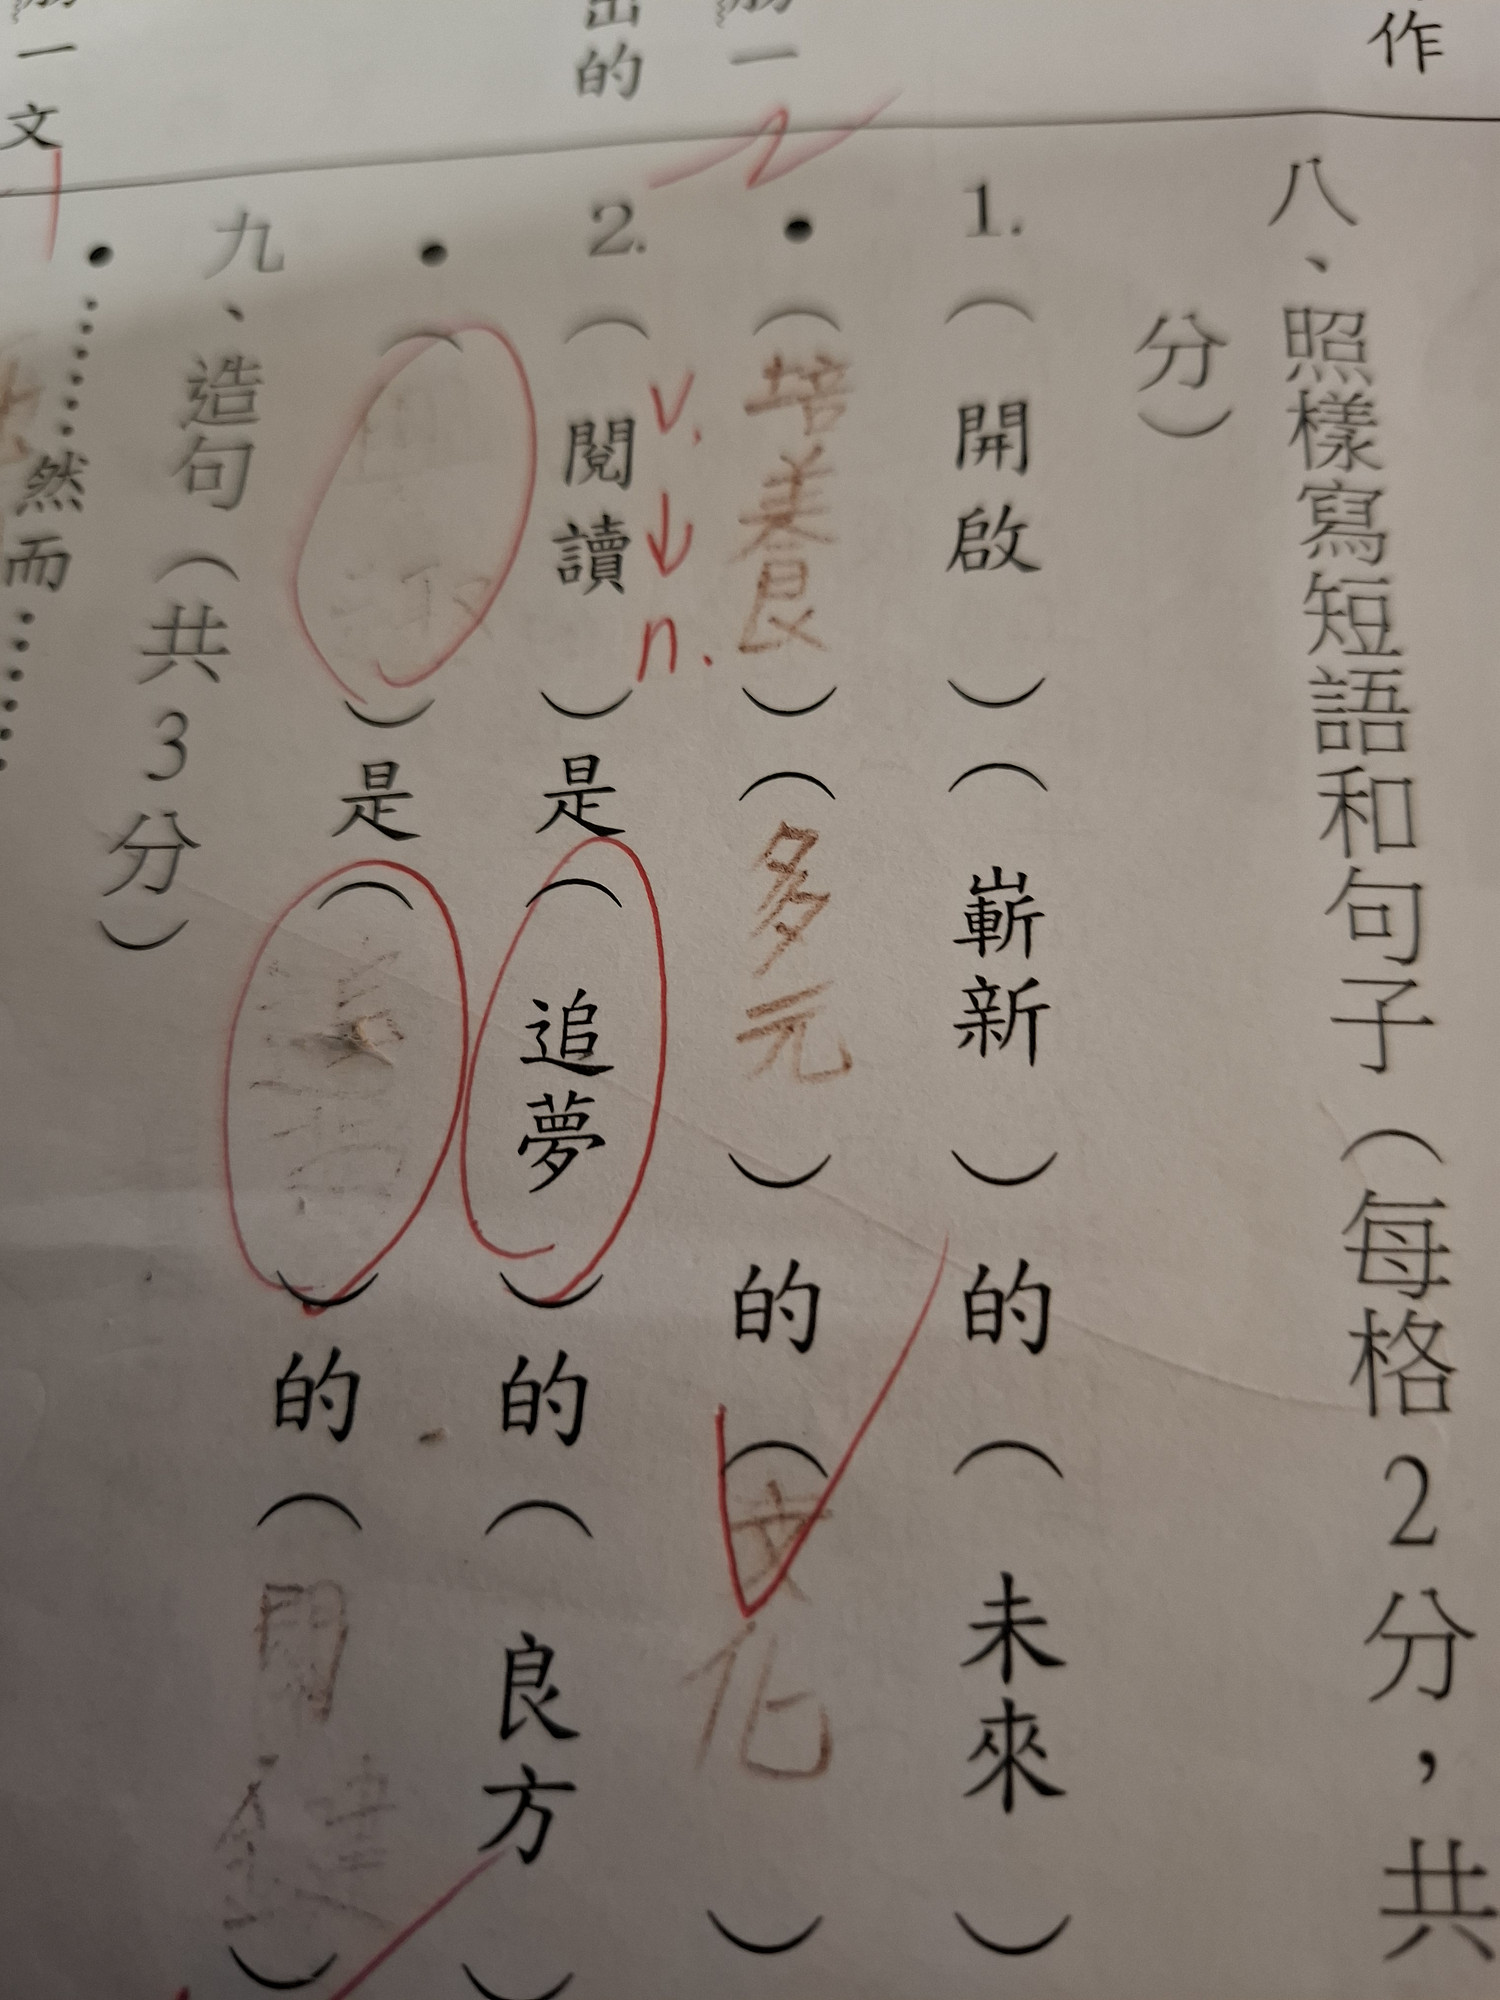 作
八、照樣寫短語和句子（每格2分，共
分）
1.（開啟）（嶄新）的（未來）
•（培養）（多元）的（文化）
出的
2.（閱讀）是（追夢）的（良方）
v. ↓ n.
•（ ）是（ ）的（關鍵）
九、造句（共3分）
一文
•……然而……